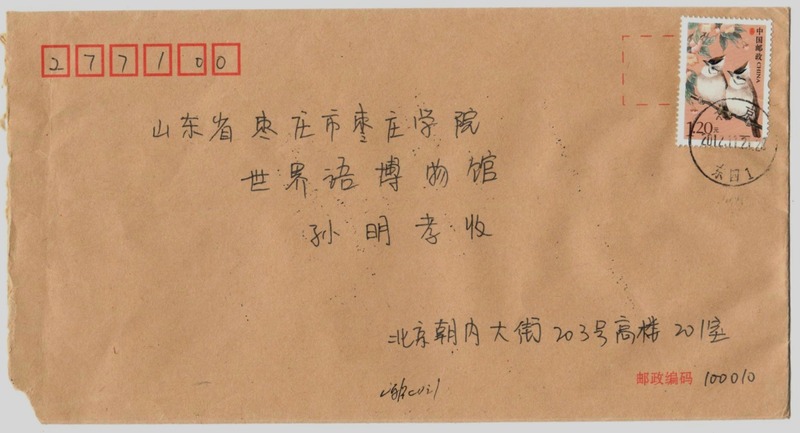 277100
中国邮政 CHINA
1.20元
山东省枣庄市枣庄学院
世界语博物馆
孙明孝收
北京朝内大街203号高楼201室
邮政编码 100010